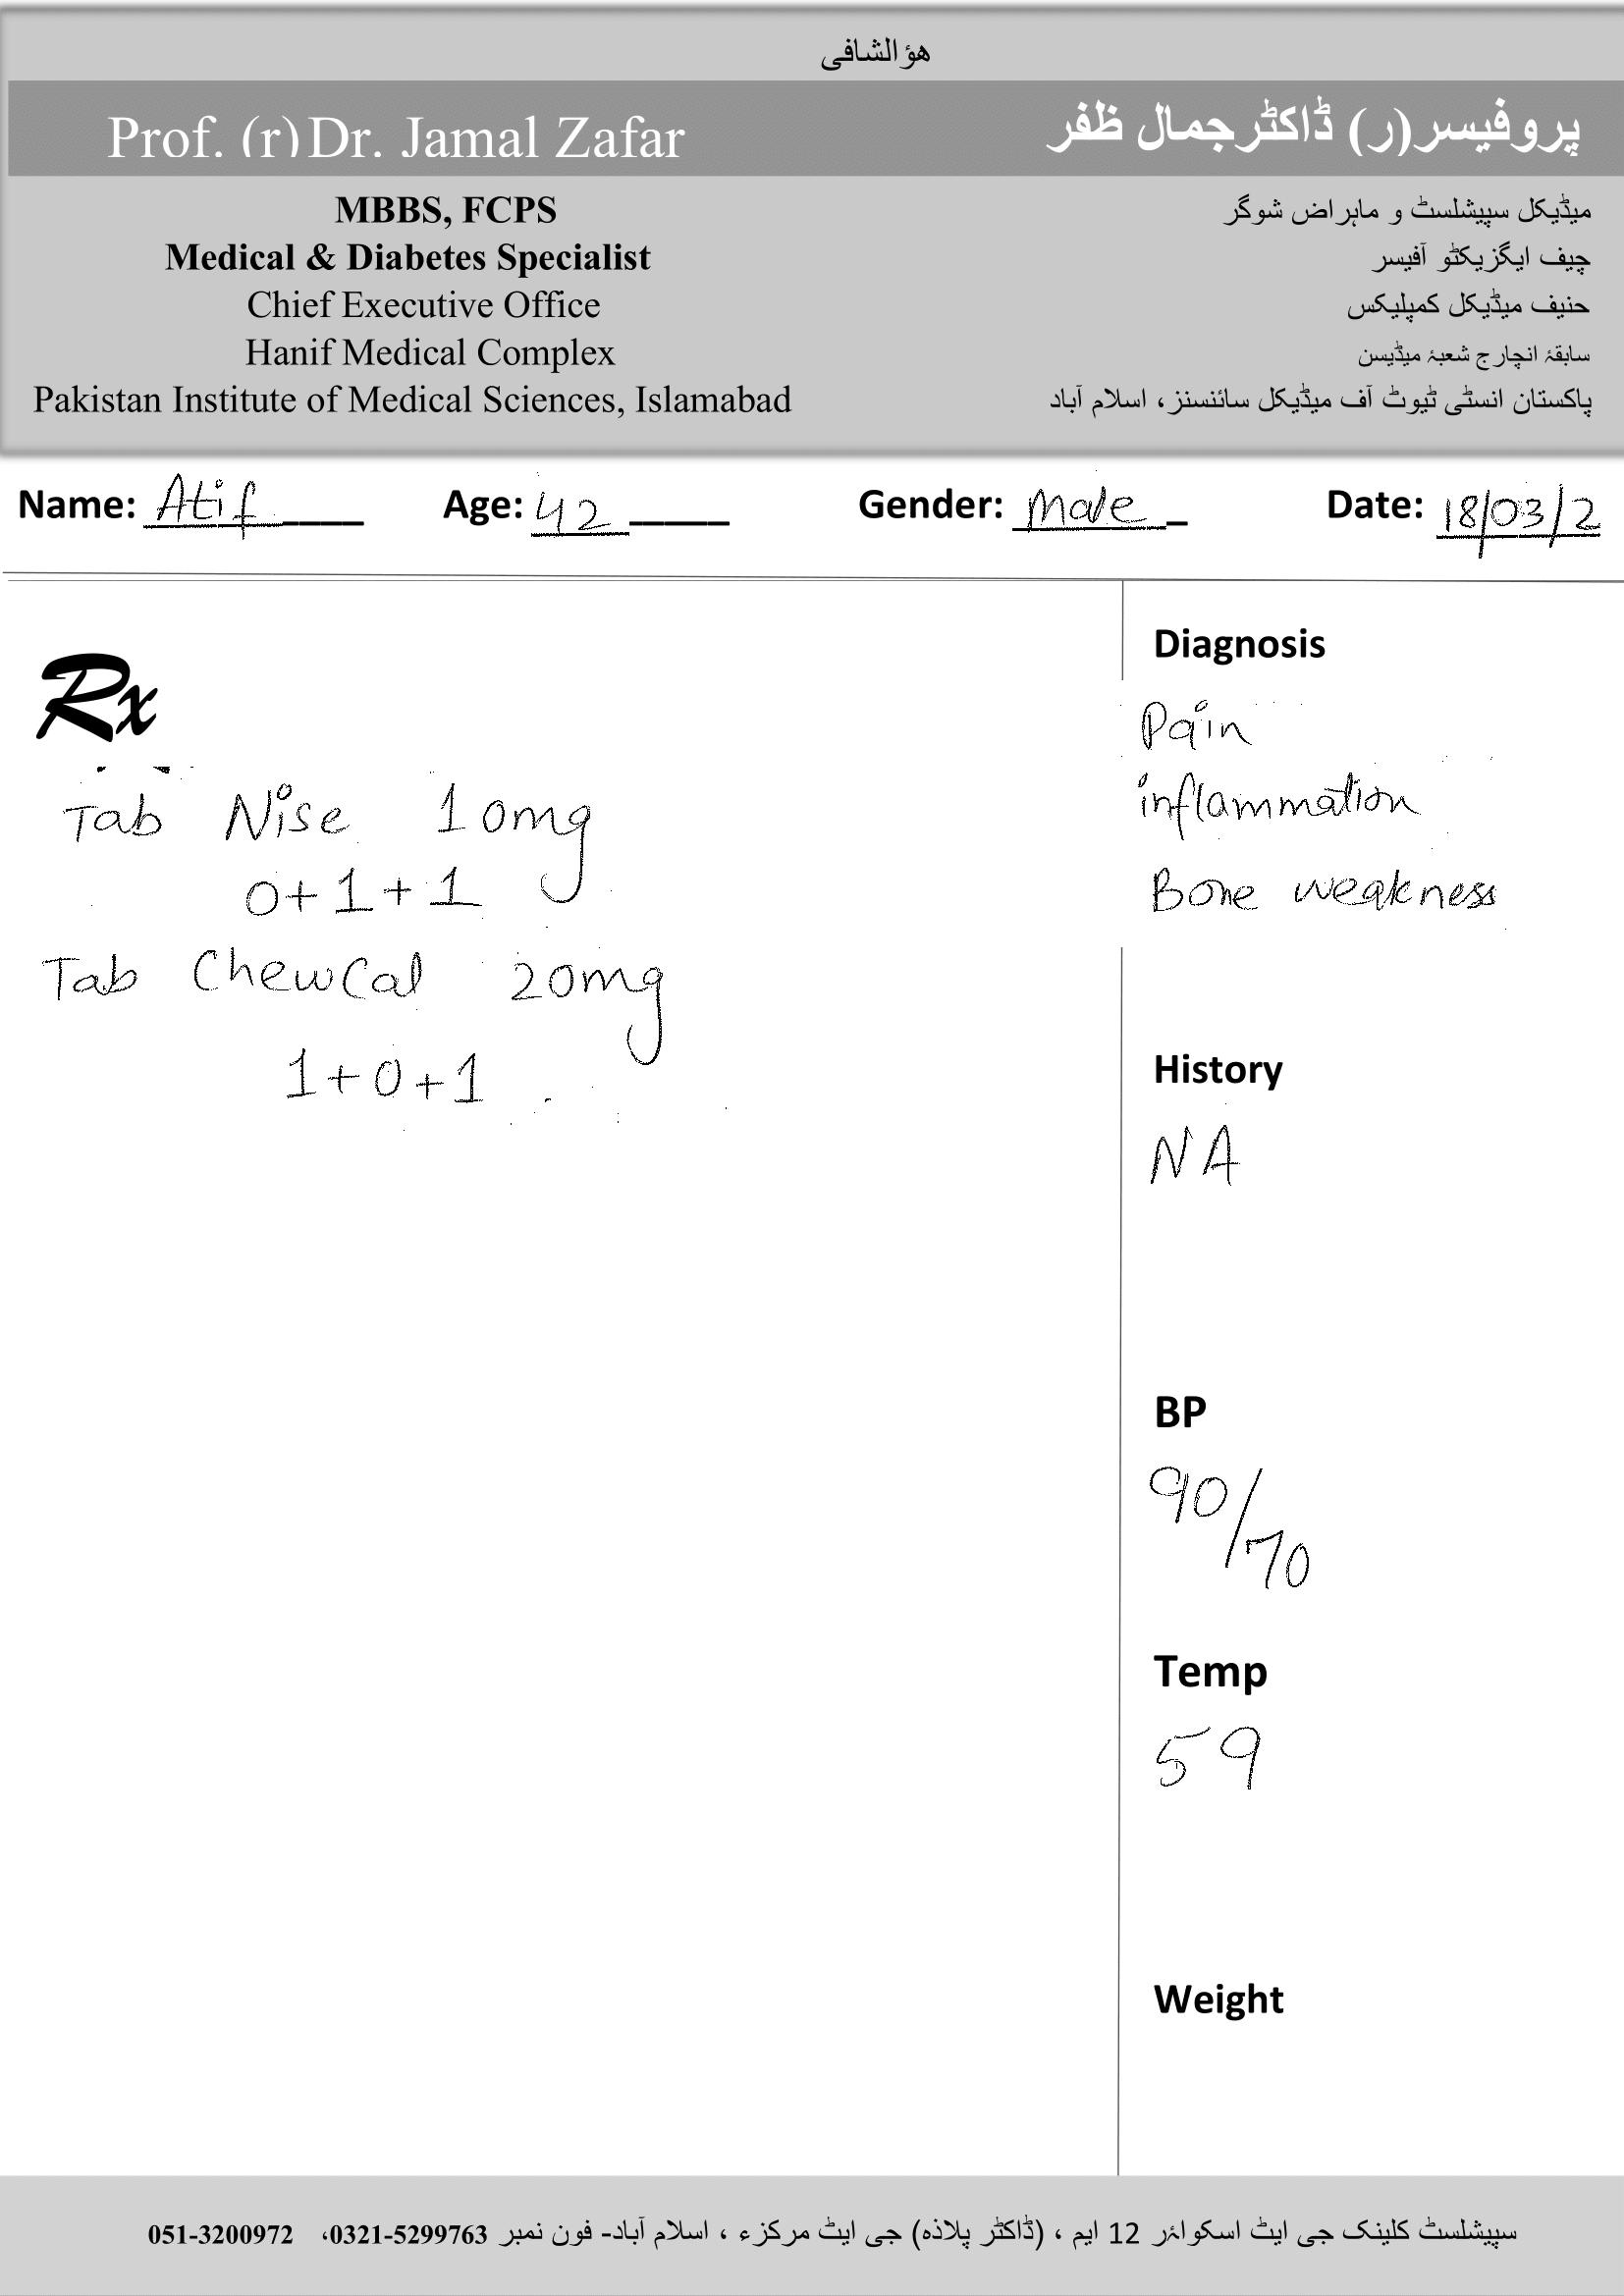 هؤالشافی
Prof. (r) Dr. Jamal Zafar
پروفیسر(ر) ڈاکٹرجمال ظفر
MBBS, FCPS
Medical & Diabetes Specialist
Chief Executive Office
Hanif Medical Complex
Pakistan Institute of Medical Sciences, Islamabad
میڈیکل سپیشلسٹ و ماہراض شوگر
چیف ایگزیکٹو آفیسر
حنیف میڈیکل کمپلیکس
سابقۂ انچارج شعبۂ میڈیسن
پاکستان انسٹی ٹیوٹ آف میڈیکل سائنسنز، اسلام آباد
Name: Atif Age: 42 Gender: Male Date: 18/03/2
Rx
Tab Nise 10mg
0+1+1
Tab ChewCal 20mg
1+0+1
Diagnosis
Pain
inflammation
Bone weakness
History
NA
BP
90/70
Temp
59
Weight
سپیشلسٹ کلینک جی ایٹ اسکوائر 12 ایم ، (ڈاکٹر پلاذہ) جی ایٹ مرکزء ، اسلام آباد- فون نمبر 0321-5299763، 051-3200972